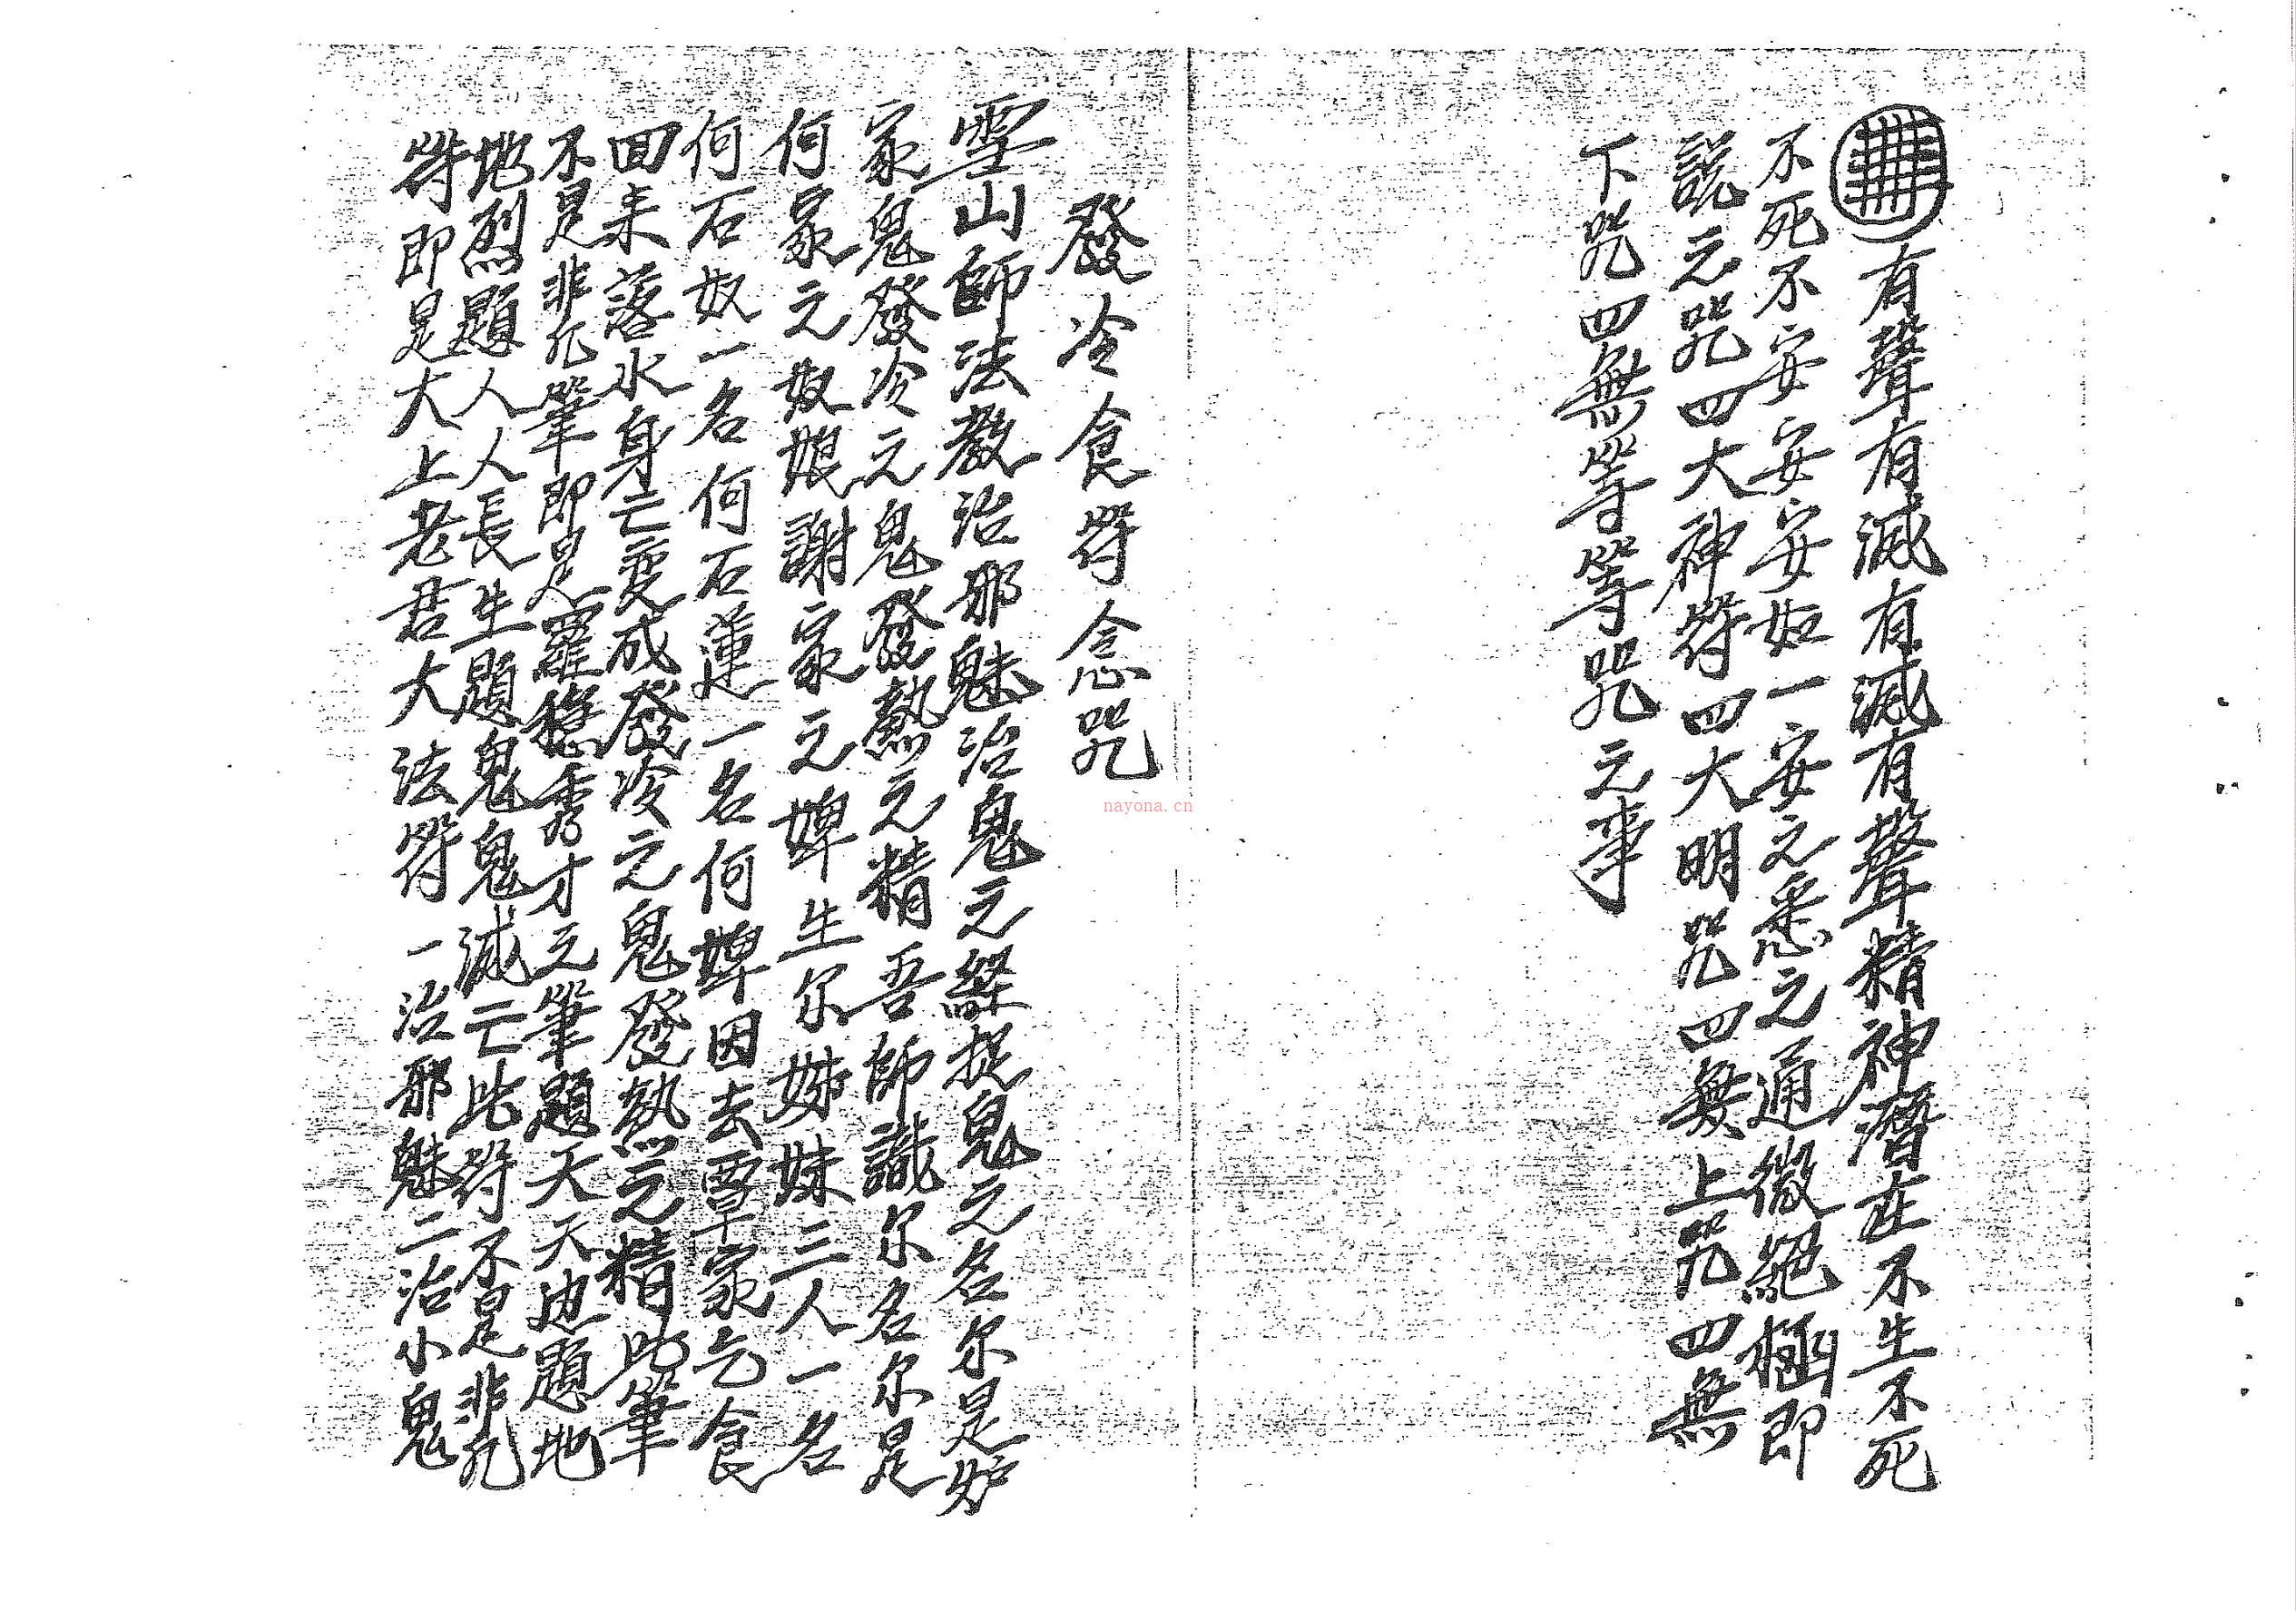 有聲有滅有滅有聲精神潛在不生不死
不死不安安安如一安之悉之通微絕極即
說之咒四大神符四大明咒四無上咒四無
下咒四無等等咒之事
發冷食符念咒
雪山師法教治邪魅治鬼之經捉鬼之名尔是妒
家鬼發冷之鬼發熱之精吾師識尔名尔是
何家之奴娘謝家之婢生尔姊妹三人一名
何石奴一名何石蓮一名何婢因去覃家乞食
回來落水身亡變成發冷之鬼發熱之精此筆
不是非凡筆即是羅穩秀才之筆題天天边題地
地烈題人人長生題鬼鬼滅亡此符不是非凡
符即是大上老君大法符一治邪魅二治小鬼
nayona.cn